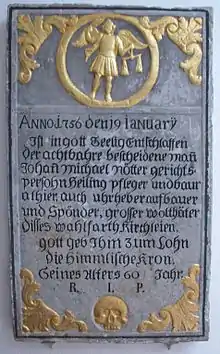 ANNO 1756 den 19 Ianuarÿ
Ist in gott Seelig Entschlaffen
der achtbahre bescheidene man
Iohañ Michael Nötter gerichts
persohn Heiling pfleger und baur
athier auch uhrheber aufbauer
und Spönder, grosser wolthäter
disses wahlfarth Kirchleien.
gott geb Ihm Zum Lohn
die Himmlische Kron.
Seines Alters 60 Jahr.
R. I. P.